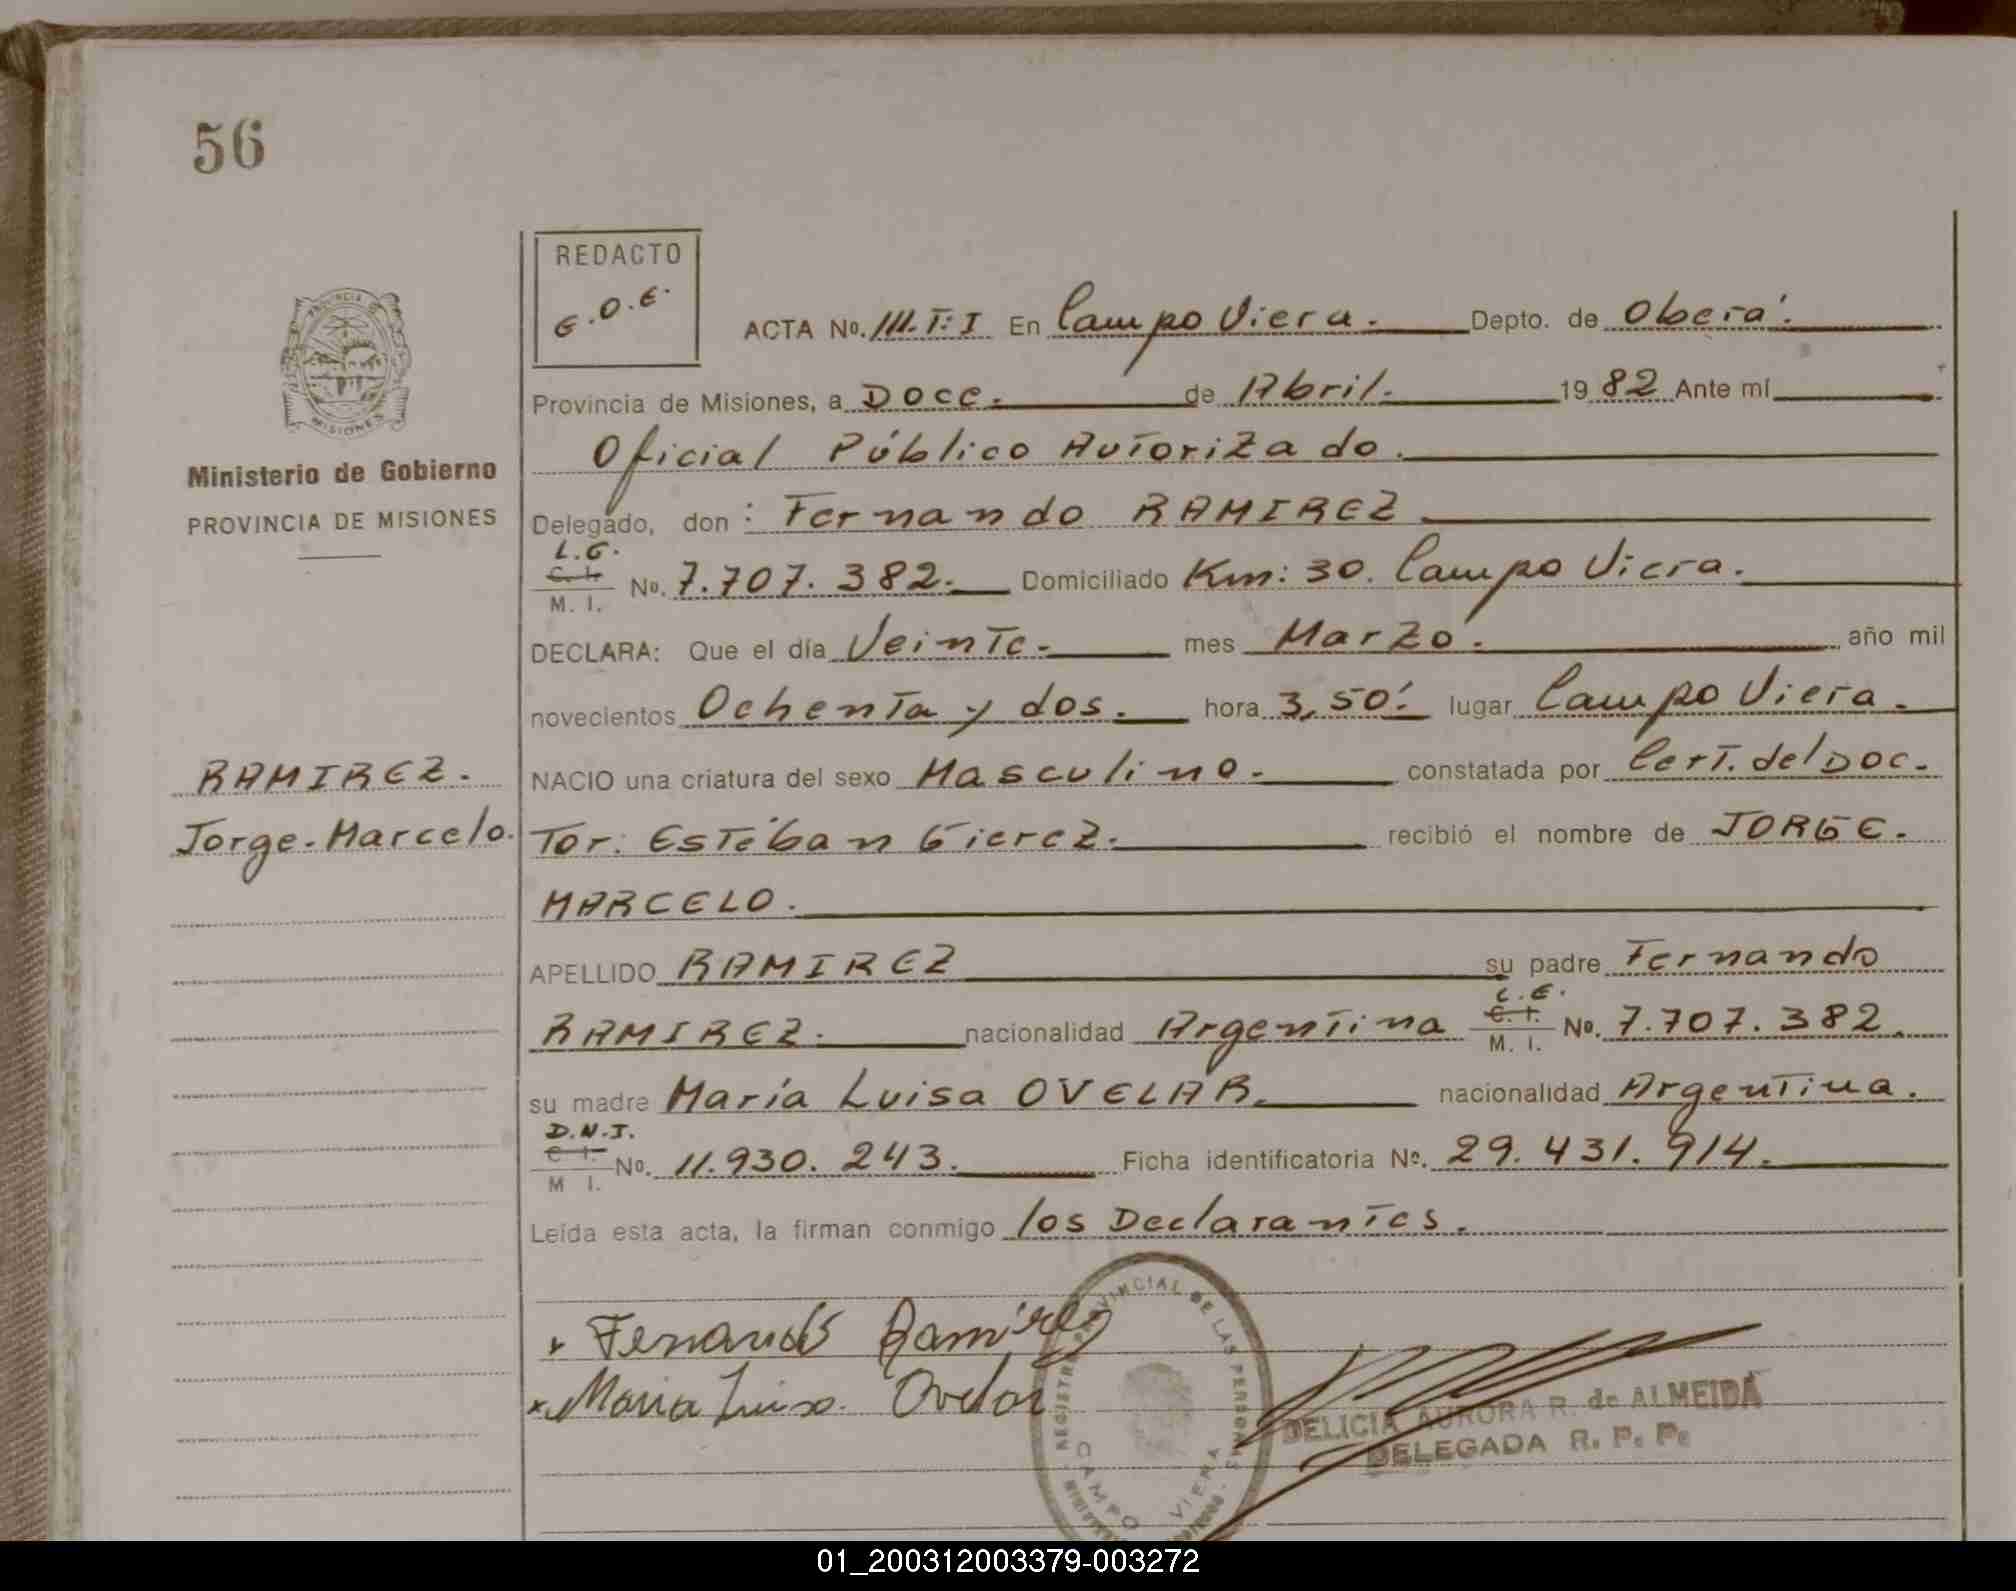 56
REDACTO
E.O.E.
PROVINCIA DE
MISIONES
Ministerio de Gobierno
PROVINCIA DE MISIONES
RAMIREZ.
Jorge-Marcelo.
ACTA No. III.T:I En Campo Viera. Depto. de Oberá.
Provincia de Misiones, a Doce. de Abril. 1982 Ante mí
Oficial Público Autorizado.
Delegado, don : Fernando RAMIREZ
L.E.
C. I.
M. I. No. 7.707.382. Domiciliado Km: 30. Campo Viera.
DECLARA: Que el día Veinte. mes Marzo. año mil
novecientos Ochenta y dos. hora 3,50! lugar Campo Viera.
NACIO una criatura del sexo Masculino. constatada por Cert. del Doc.
Tor: Estéban Gierez. recibió el nombre de JORGE.
MARCELO.
APELLIDO RAMIREZ su padre Fernando
RAMIREZ. nacionalidad Argentina L.E. C. I. M. I. No. 7.707.382
su madre María Luisa OVELAR. nacionalidad Argentina.
D.N.I.
C I.
M I. No. 11.930.243. Ficha identificatoria No. 29.431.914.
Leída esta acta, la firman conmigo los Declarantes.
Fernando Ramirez
Maria Luisa. Ovelar
REGISTRO PROVINCIAL DE LAS PERSONAS
CAMPO VIERA
DELICIA AURORA R. de ALMEIDA
DELEGADA R. P. P.
01_200312003379-003272